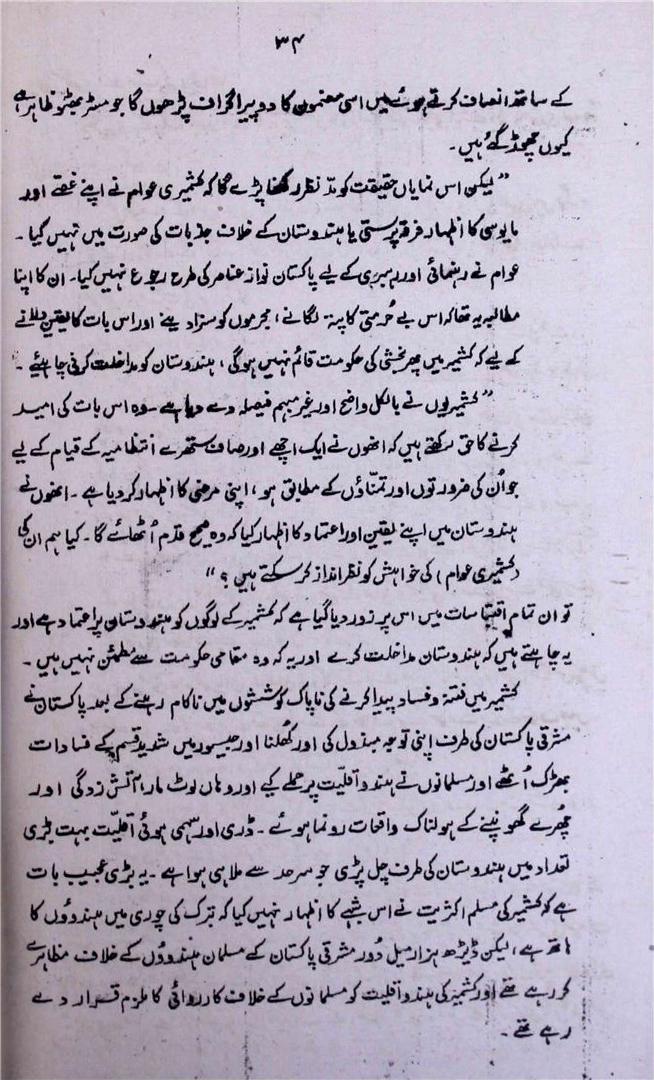 ۳۴
کے ساتھ انصاف کرتے ہوئے میں اسی مضمون کا دو پیراگراف پڑھوں گا جو مسٹر بھٹو ظاہر ہے
کیوں چھوڑ گئے ہیں۔
”لیکن اس نمایاں حقیقت کو مدّ نظر رکھنا پڑے گا کہ کشمیری عوام نے اپنے غصے اور
مایوسی کا اظہار فرقہ پرستی یا ہندوستان کے خلاف جذبات کی صورت میں نہیں کیا۔
عوام نے رہنمائی اور رہبری کے لیے پاکستان نواز عناصر کی طرح رجوع نہیں کیا۔ ان کا اپنا
مطالبہ یہ تھا کہ اس بے حُرمتی کا پتہ لگانے، مجرموں کو سزا دینے اور اس بات کا یقین دلانے
کے لیے کہ کشمیر میں پھر بخشی کی حکومت قائم نہیں ہوگی، ہندوستان کو مداخلت کرنی چاہئیے۔
”کشمیریوں نے بالکل واضح اور غیر مبہم فیصلہ دے دیا ہے۔ وہ اس بات کی امید
کرنے کا حق رکھتے ہیں کہ انھوں نے ایک اچھے اور صاف ستھرے انتظامیہ کے قیام کے لیے
جو اُن کی ضرورتوں اور تمنّاؤں کے مطابق ہو، اپنی مرضی کا اظہار کردیا ہے۔ انھوں نے
ہندوستان میں اپنے یقین اور اعتماد کا اظہار کیا کہ وہ صحیح قدم اُٹھائے گا۔ کیا ہم ان کی
(کشمیری عوام) کی خواہش کو نظر انداز کر سکتے ہیں؟“
تو ان تمام اقتباسات میں اس پر زور دیا گیا ہے کہ کشمیر کے لوگوں کو ہندوستان پر اعتماد ہے اور
یہ چاہتے ہیں کہ ہندوستان مداخلت کرے اور یہ کہ وہ مقامی حکومت سے مطمئن نہیں ہیں۔
کشمیر میں فتنہ و فساد پیدا کرنے کی ناپاک کوششوں میں ناکام رہنے کے بعد پاکستان نے
مشرقی پاکستان کی طرف اپنی توجہ مبذول کی اور کُھلنا اور جیسور میں شدید قسم کے فسادات
بھڑک اُٹھے اور مسلمانوں نے ہندو اقلیّت پر حملے کیے اور وہاں لوٹ مار، آتش زدگی اور
چُھرے گھونپنے کے ہولناک واقعات رونما ہوئے۔ ڈری اور سہمی ہوئی اقلیّت بہت بڑی
تعداد میں ہندوستان کی طرف چل پڑی جو سرحد سے ملا ہی ہوا ہے۔ یہ بڑی عجیب بات
ہے کہ کشمیر کی مسلم اکثریت نے اس شبہے کا اظہار نہیں کیا کہ تبرک کی چوری میں ہندوؤں کا
ہاتھ ہے، لیکن ڈیڑھ ہزار میل دُور مشرقی پاکستان کے مسلمان ہندووُں کے خلاف مظاہرے
کر رہے تھے اور کشمیر کی ہندو اقلیت کو مسلمانوں کے خلاف کارروائی کا ملزم قرار دے
رہے تھے۔